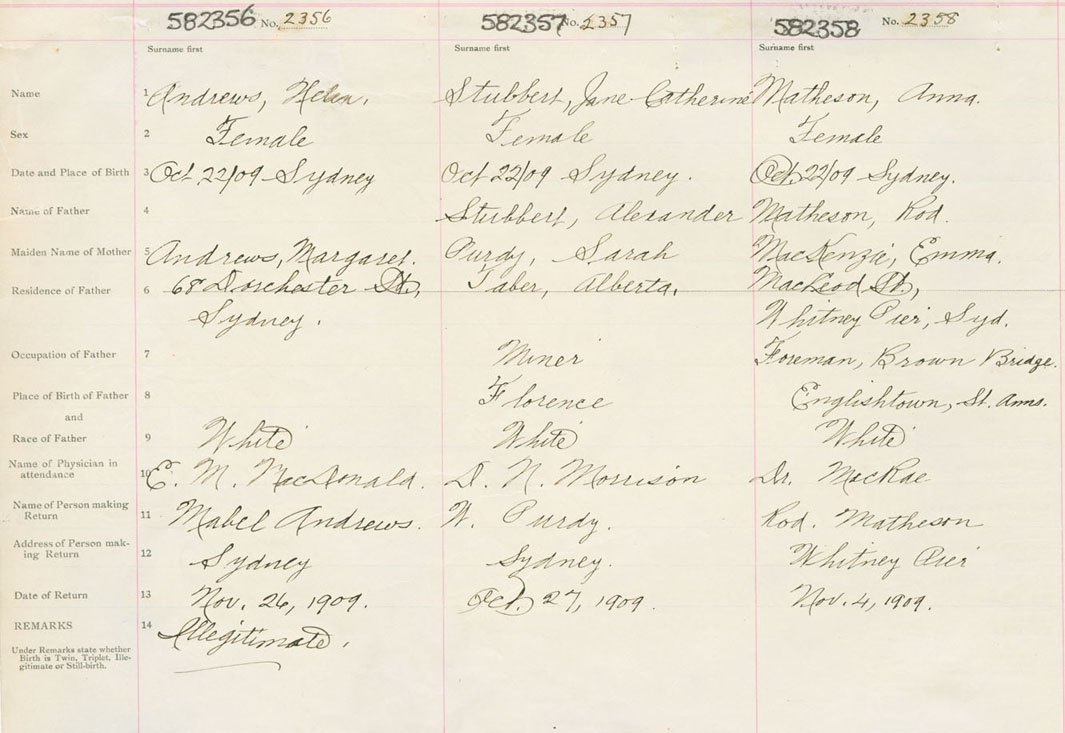 582356 No. 2356 582357 No. 2357 582358 No. 2358
Surname first Surname first Surname first
Name 1 Andrews, Helen. Stubbert, Jane Catherine Matheson, Anna.
Sex 2 Female Female Female
Date and Place of Birth 3 Oct 22/09 Sydney Oct 22/09 Sydney. Oct. 22/09 Sydney.
Name of Father 4 Stubbert, Alexander Matheson, Rod.
Maiden Name of Mother 5 Andrews, Margaret. Purdy, Sarah MacKenzie, Emma.
Residence of Father 6 68 Dorchester St, Taber, Alberta. MacLeod St,
Sydney. Whitney Pier, Syd.
Occupation of Father 7 Miner Foreman, Brown Bridge.
Place of Birth of Father 8 Florence Englishtown, St. Anns.
and
Race of Father 9 White White White
Name of Physician in
attendance 10 E. M. MacDonald. D. N. Morrison Dr. MacRae
Name of Person making
Return 11 Mabel Andrews. W. Purdy. Rod. Matheson
Address of Person mak-
ing Return 12 Sydney Sydney. Whitney Pier
Date of Return 13 Nov. 26, 1909. Oct. 27, 1909. Nov. 4, 1909.
REMARKS 14 Illegitimate.
Under Remarks state whether
Birth is Twin, Triplet, Ille-
gitimate or Still-birth.